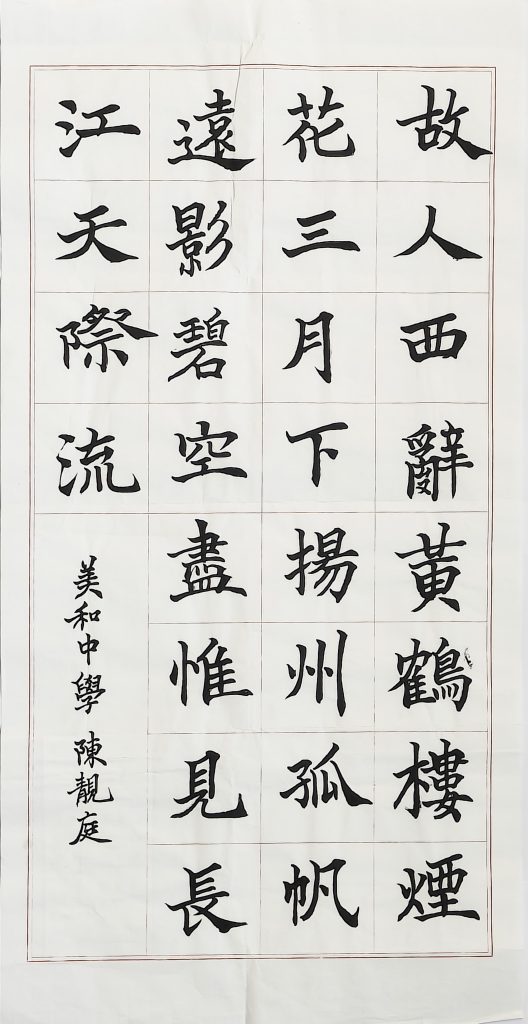 故人西辭黃鶴樓煙
花三月下揚州孤帆
遠影碧空盡惟見長
江天際流
美和中學 陳靚庭